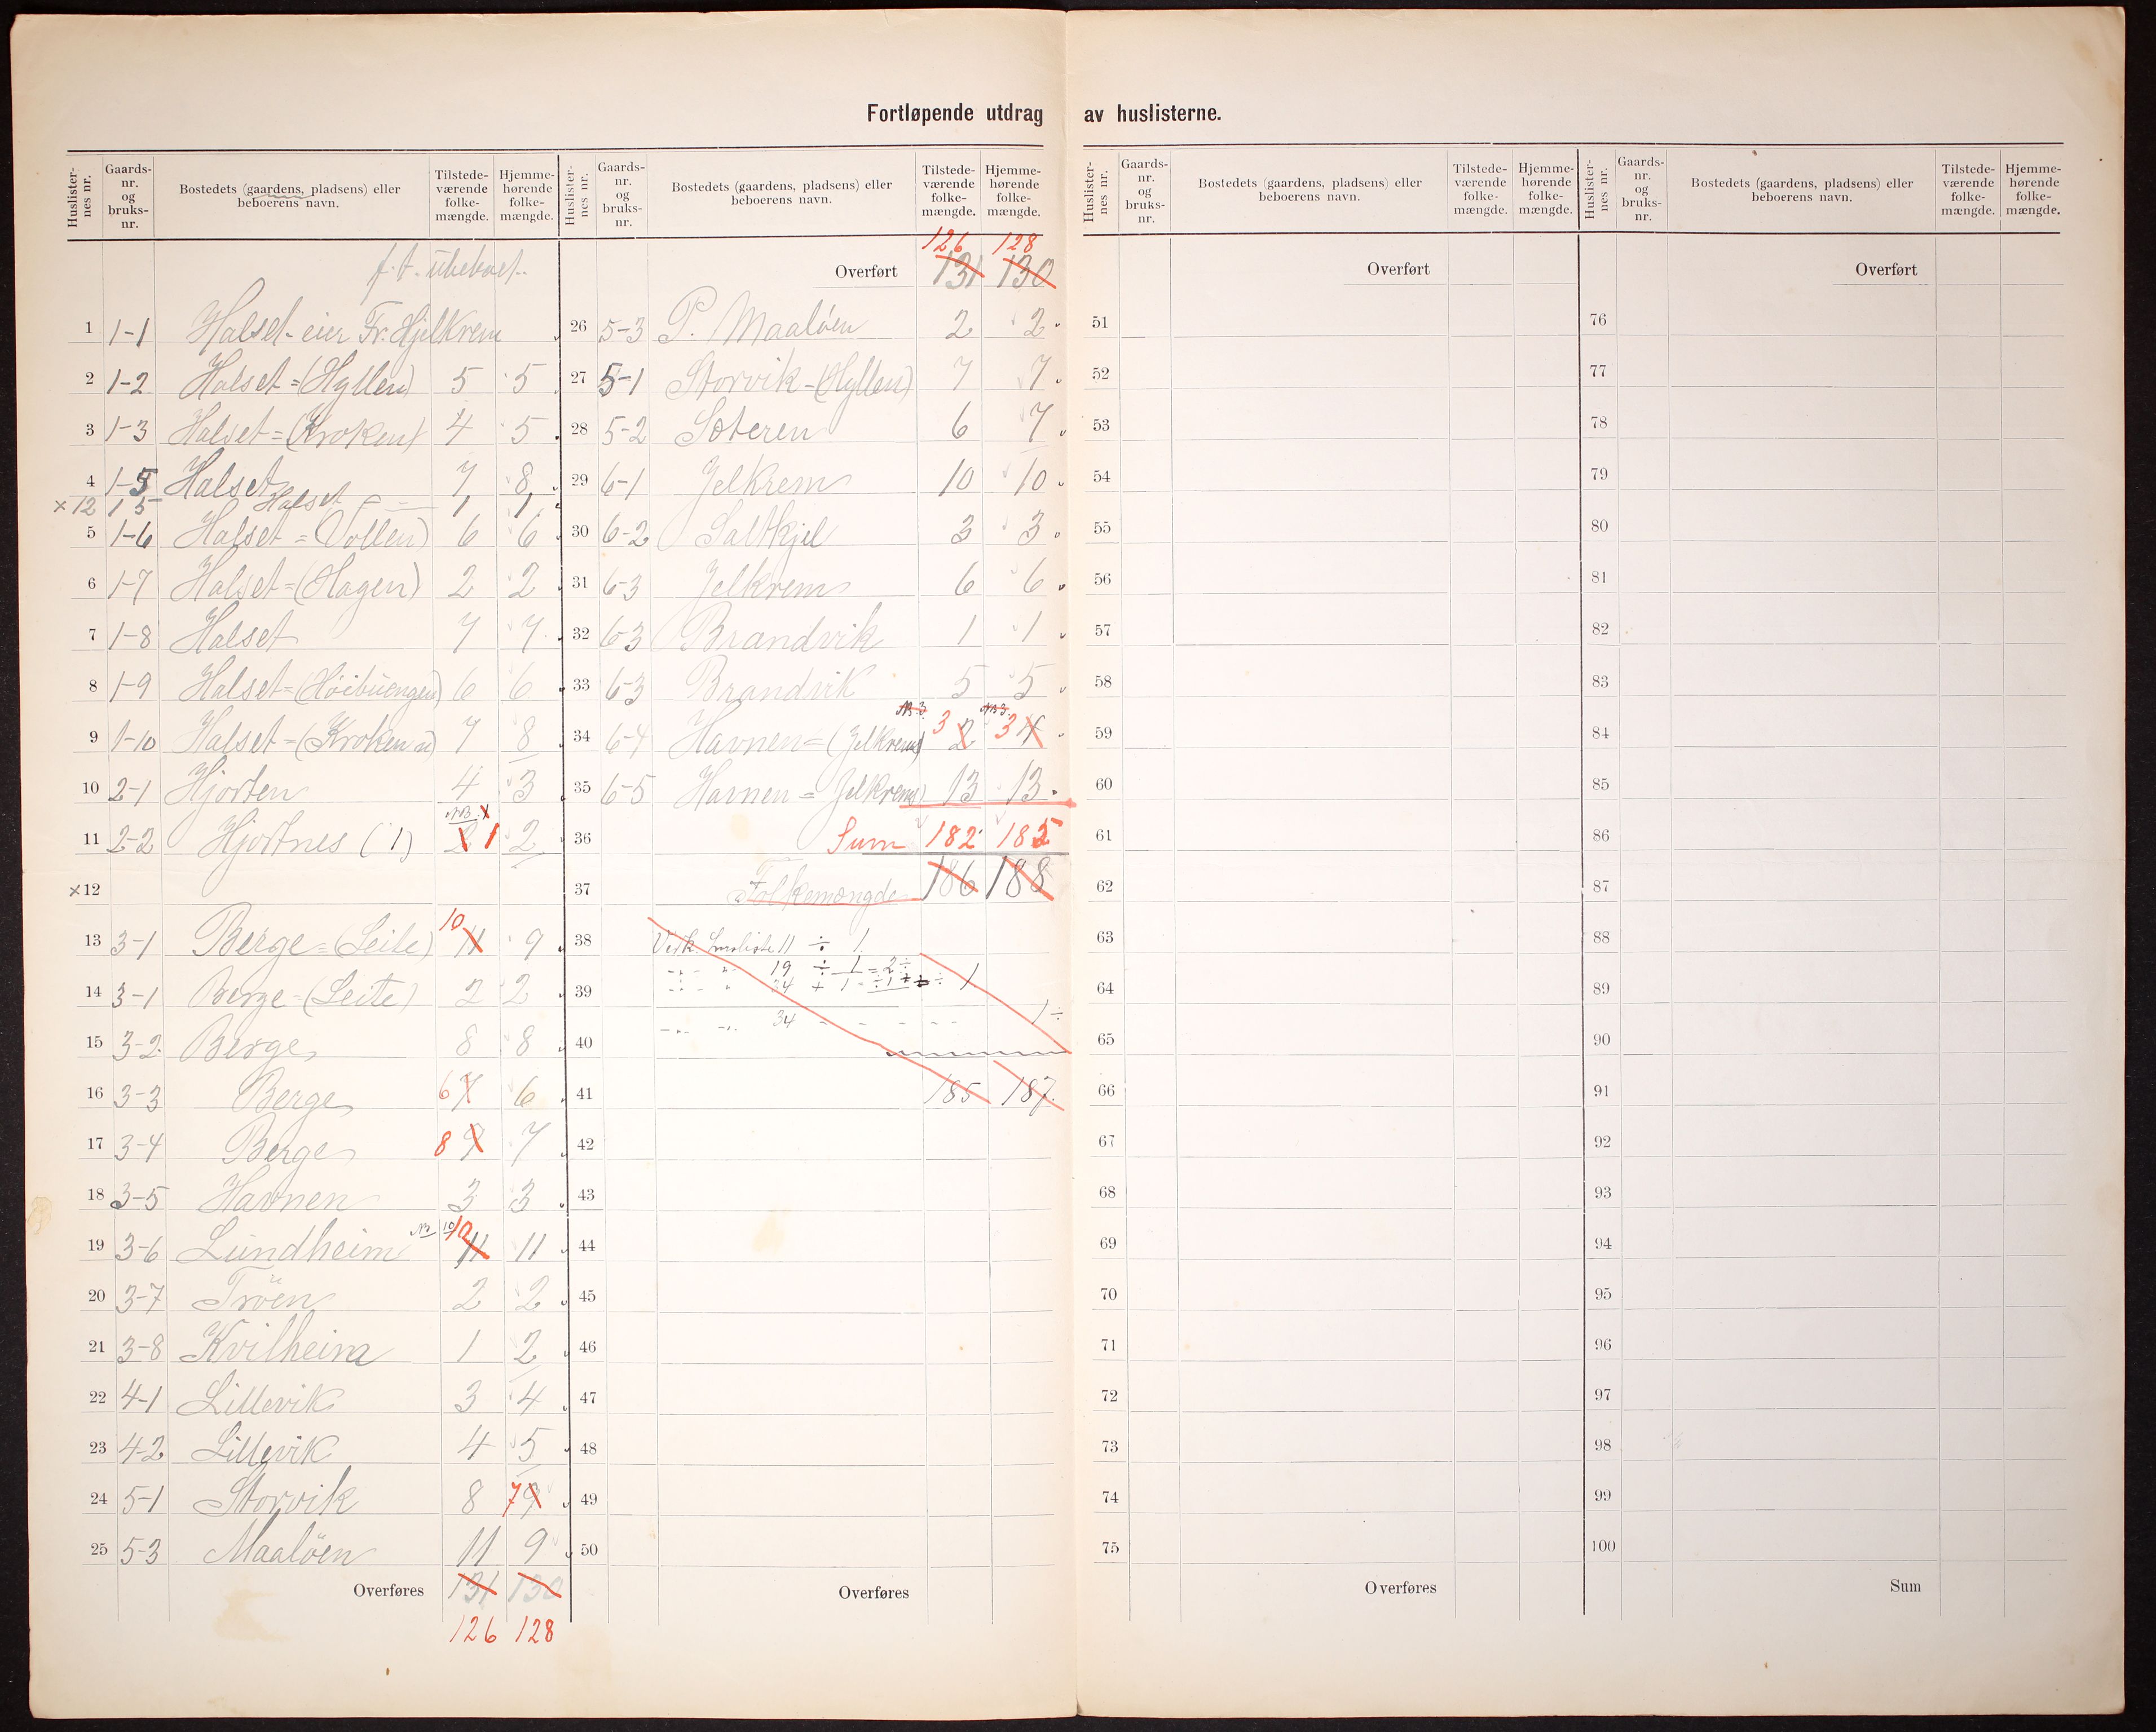 Fortløpende utdrag av huslisterne.
Huslister-nes nr. Gaards-nr. og bruks-nr. Bostedets (gaardens, pladsens) eller beboerens navn. Tilstede-værende folke-mængde. Hjemme-hørende folke-mængde.
f.t. ubeboet.
1 1-1 Halset - eier Fr. Hjelkrem
2 1-2 Halset = (Hyllen) 5 5
3 1-3 Halset = (Kroken) 4 5
4 1-5 Halset 7 8
×12 1 5 Halset 1 1
5 1-6 Halset = (Vollen) 6 6
6 1-7 Halset = (Hagen) 2 2
7 1-8 Halset 7 7
8 1-9 Halset = (Höibuengen) 6 6
9 1-10 Halset = (Kroken n) 7 8
10 2-1 Hjorten 4 3
NB 1
11 2-2 Hjortnes (1) 2 1 2
×12
13 3-1 Berge = (Leite) 10 11 9
14 3-1 Berge = (Leite) 2 2
15 3-2 Berge 8 8
16 3-3 Berge 6 7 6
17 3-4 Berge 8 9 7
18 3-5 Havnen 3 3
19 3-6 Lundheim NB 10 10 11 11
20 3-7 Tröen 2 2
21 3-8 Kvilheim 1 2
22 4-1 Lillevik 3 4
23 4-2 Lillevik 4 5
24 5-1 Storvik 8 7 9
25 5-3 Maalöen 11 9
Overføres 131 130
126 128
Huslister-nes nr. Gaards-nr. og bruks-nr. Bostedets (gaardens, pladsens) eller beboerens navn. Tilstede-værende folke-mængde. Hjemme-hørende folke-mængde.
126 128
Overført 131 130
26 5-3 P. Maalöen 2 2
27 5-1 Storvik = (Hyllen) 7 7
28 5-2 Soteren 6 7
29 6-1 Jelkrem 10 10
30 6-2 Saltkjel 3 3
31 6-3 Jelkrem 6 6
32 6-3 Brandvik 1 1
33 6-3 Brandvik 5 5
NB 3 NB 3
34 6-4 Havnen = (Jelkrem) 3 2 3 4
35 6-5 Havnen = Jelkrem) 13 13
36 Sum 182 185
37 Folkemængde 186 188
38 Virk. husliste 11 ÷ 1
19 ÷ 1 = 2 ÷
39 34 + 1 ÷ 1 ÷ 1
34 1 ÷
40
41 185 187
42
43
44
45
46
47
48
49
50
Overføres
Huslister-nes nr. Gaards-nr. og bruks-nr. Bostedets (gaardens, pladsens) eller beboerens navn. Tilstede-værende folke-mængde. Hjemme-hørende folke-mængde.
Overført
51
52
53
54
55
56
57
58
59
60
61
62
63
64
65
66
67
68
69
70
71
72
73
74
75
Overføres
Huslister-nes nr. Gaards-nr. og bruks-nr. Bostedets (gaardens, pladsens) eller beboerens navn. Tilstede-værende folke-mængde. Hjemme-hørende folke-mængde.
Overført
76
77
78
79
80
81
82
83
84
85
86
87
88
89
90
91
92
93
94
95
96
97
98
99
100
Sum